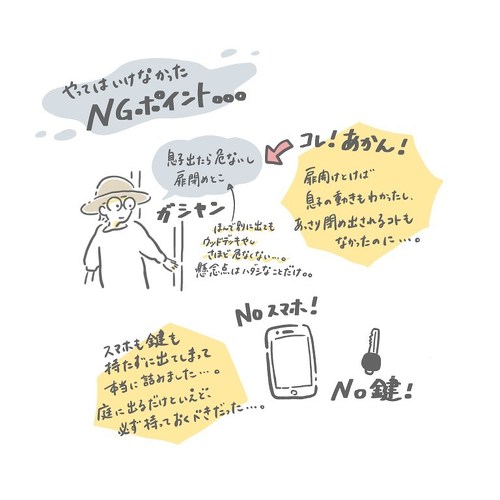 やってはいけなかった
NGポイント。。。
息子出たら危ないし
扉閉めとこ
コレ!あかん!
ガシャン
扉開けとけば
息子の動きもわかったし、
あっさり閉め出されるコトも
なかったのに…。
ほんで別に出とも
ウッドデッキやし
さほど危なくない…。
懸念点はハダシなことだけ。。
Noスマホ!
スマホも鍵も
持たずに出てしまって
本当に詰みました…。
庭に出るだけといえど、
必ず持っておくべきだった…。
No鍵!